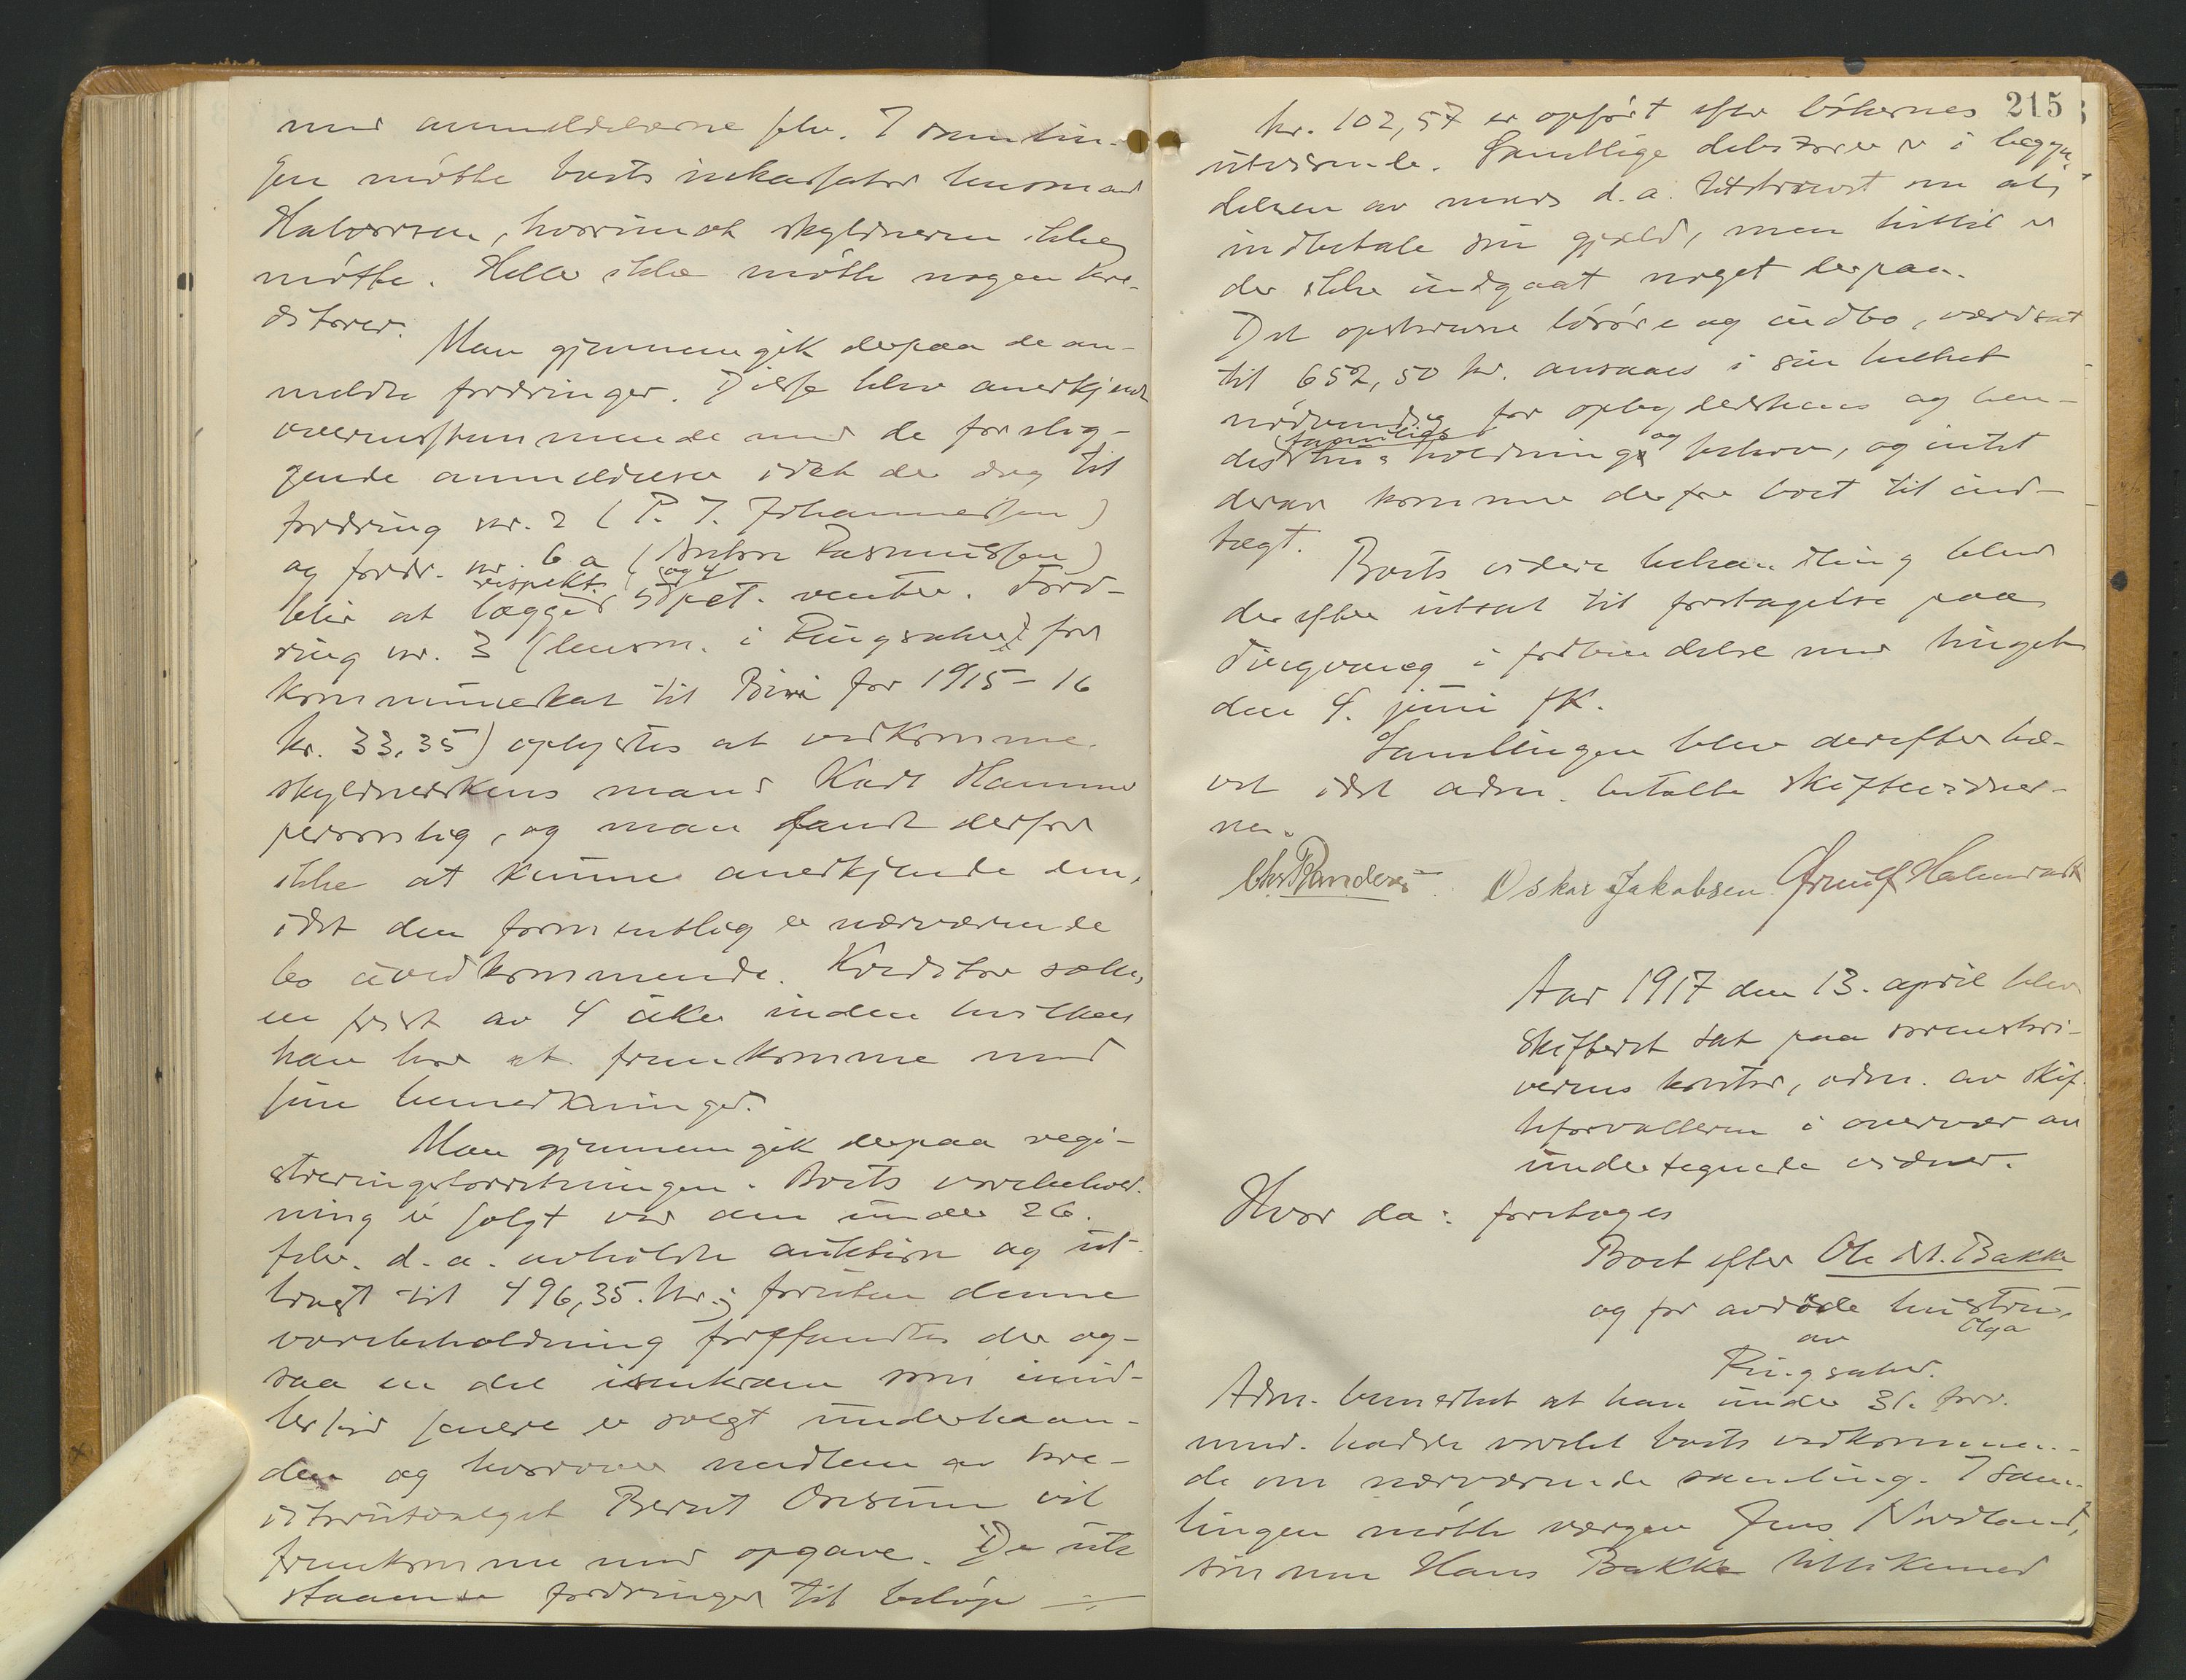 med anmeldelserne selv. I samlin-
gen møtte boets inkassator lensmand
Halvorsen, hvorimot skyldneren ikke
møtte. Heller ikke møtte nogen kre-
ditorer.
Man gjennemgik derpaa de an-
meldte fordringer. Disse blev anerkjendt
overensstemmende med de forelig-
gende anmeldelser idet der dog til
fordring nr. 2 (P. J. Johannessen)
og fordr. nr. 6 a (Anton Rasmussen)
blir at lægge respekt. 5 og 4 pct. renter. Ford-
ring nr. 3 (lensm. i Ringsaker for
kommuneskat til Biri for 1915-16
kr. 33,35) oplystes at vedkomme
skyldnerskens mand Karl Hammer
personlig, og man fandt derfor
ikke at kunne anerkjende den,
idet den formentlig er nærværende
bo uvedkommende. Kreditor sættes
en frist av 4 uker inden hvilken
han har at fremkomme med
sine bemerkninger.
Man gjennemgik derpaa regi-
streringsforretningen. Boets varebehold-
ning er solgt ved den under 26.
febr. d.a. avholdte auktion og ut-
bragt til 496,35 kr.; foruten denne
varebeholdning forefandtes der og-
saa en del isenkram som imid-
lertid senere er solgt underhaan-
den og hvorover medlem av kre-
ditorutvalget Bernt Onsum vil
fremkomme med opgave. De ute
staaende fordringer til beløp
215
kr. 102,57 er opført efter bøkernes
utvisende. Samtlige debitorer er i begyn-
delsen av mars d.a. tilskrevet om at
indbetale sin gjæld, men hittil er
der ikke indgaat noget derpaa.
Det opskrevne løsøre og indbo, værdsat
til 652,50 kr. ansaaes i sin helhet
nødvendig for opbyderskens og hen-
des families husholdning og behov, og intet
derav kommer derfor boet til ind-
tægt.
Boets videre behandling blev
derefter utsat til foretagelse paa
Tingvang i forbindelse med tinget
den 4. juni fk.
Samlingen blev derefter hæ-
vet idet adm. betalte skiftevidner-
ne.
Chr. Randers Oskar Jakobsen
Aar 1917 den 13. april blev
skifteret sat paa sorenskri-
verens kontor, adm. av skif-
teforvalteren i overvær av
undertegnede vidner.
Hvor da: foretoges
Boet efter Ole M. Bakke
og før avdøde hustru Olga
av
Ringsaker.
Adm. bemerket at han under 31. forr.
mnd. hadde varslet boets vedkommen-
de om nærværende samling. I sam-
lingen møtte vergen Jens Nordland,
sønnen Hans Bakke tillikemed